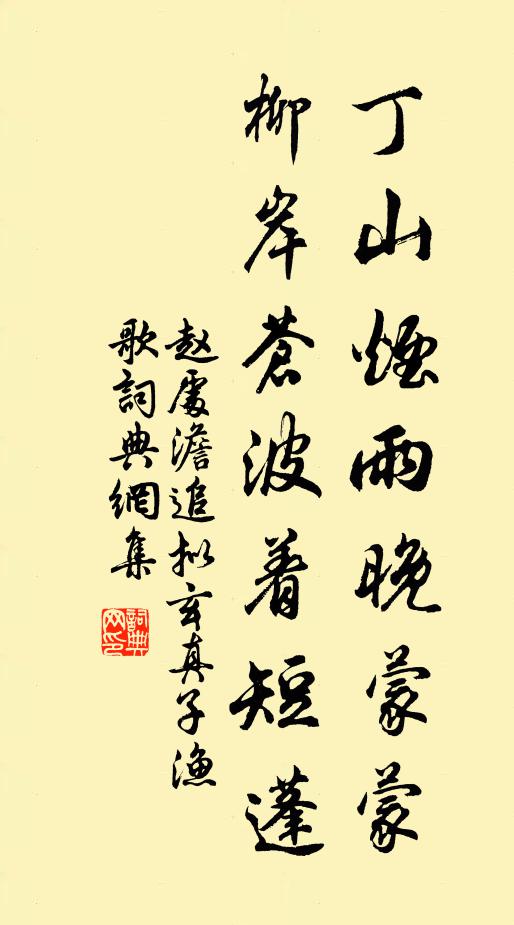 丁山煙雨晚蒙蒙
柳岸蒼波着短蓬
赵處澹追拟玄真子漁
歌詞典網集
詞典
网印